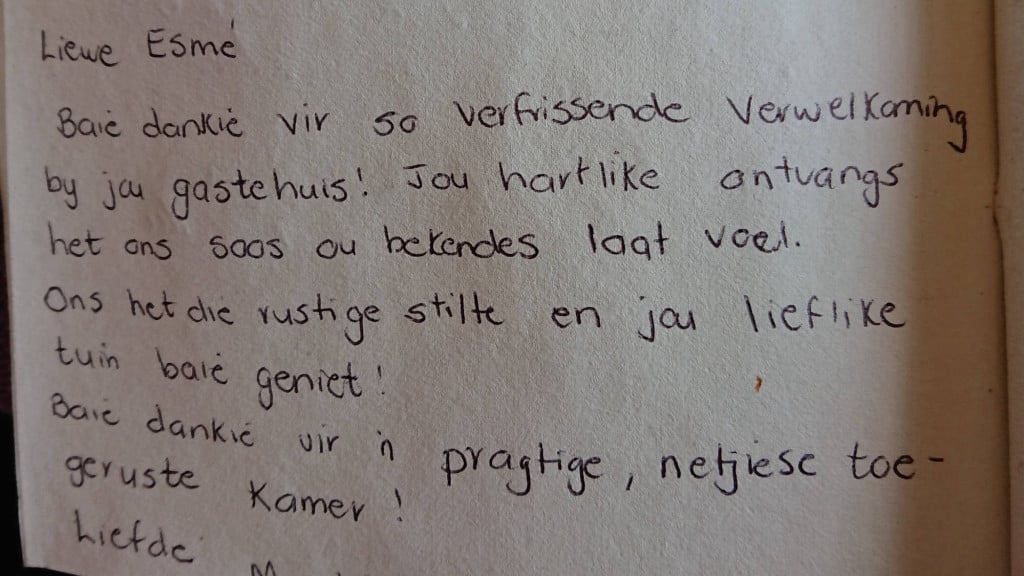 Liewe Esmé
Baie dankie vir so verfrissende verwelkoming
by jou gastehuis! Jou hartlike ontvangs
het ons soos ou bekendes laat voel.
Ons het die rustige stilte en jou lieflike
tuin baie geniet!
Baie dankie vir 'n pragtige, netjiese toe-
geruste kamer!
Liefde